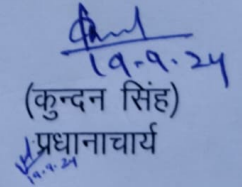 19.9.24
(कुन्दन सिंह)
प्रधानाचार्य
19.9.24